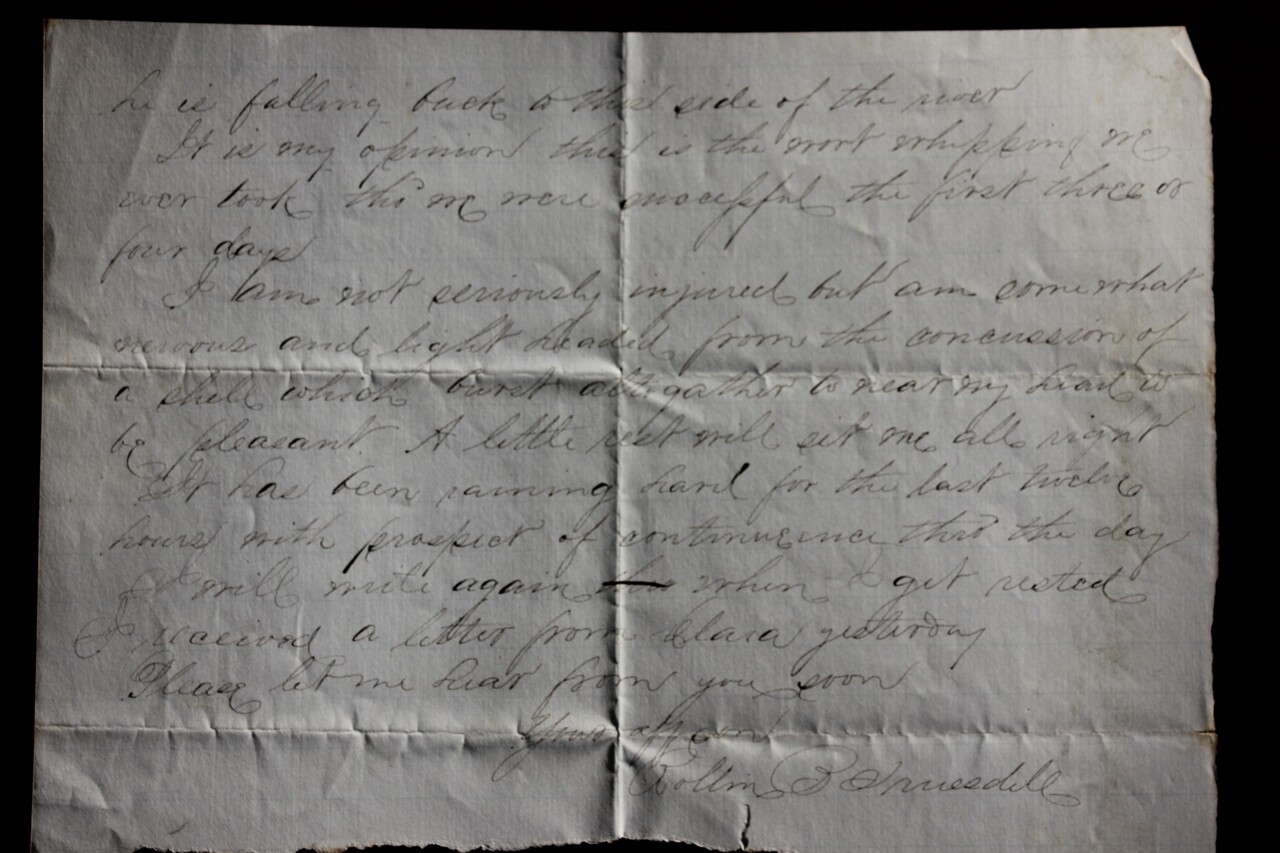 he is falling back to this side of the river
It is my opinion this is the worst whipping we
ever took tho we were successful the first three or
four days
I am not seriously injured but am somewhat
nervous and light headed from the concussion of
a shell which burst altogather to near my head to
be pleasant. A little rest will set me all right
It has been raining hard for the last twelve
hours with prospect of continueince thro the day
I will write again when I get rested
I received a letter from Clara yesterday
Please let me hear from you soon
Your aff son
Rollin B Truesdell